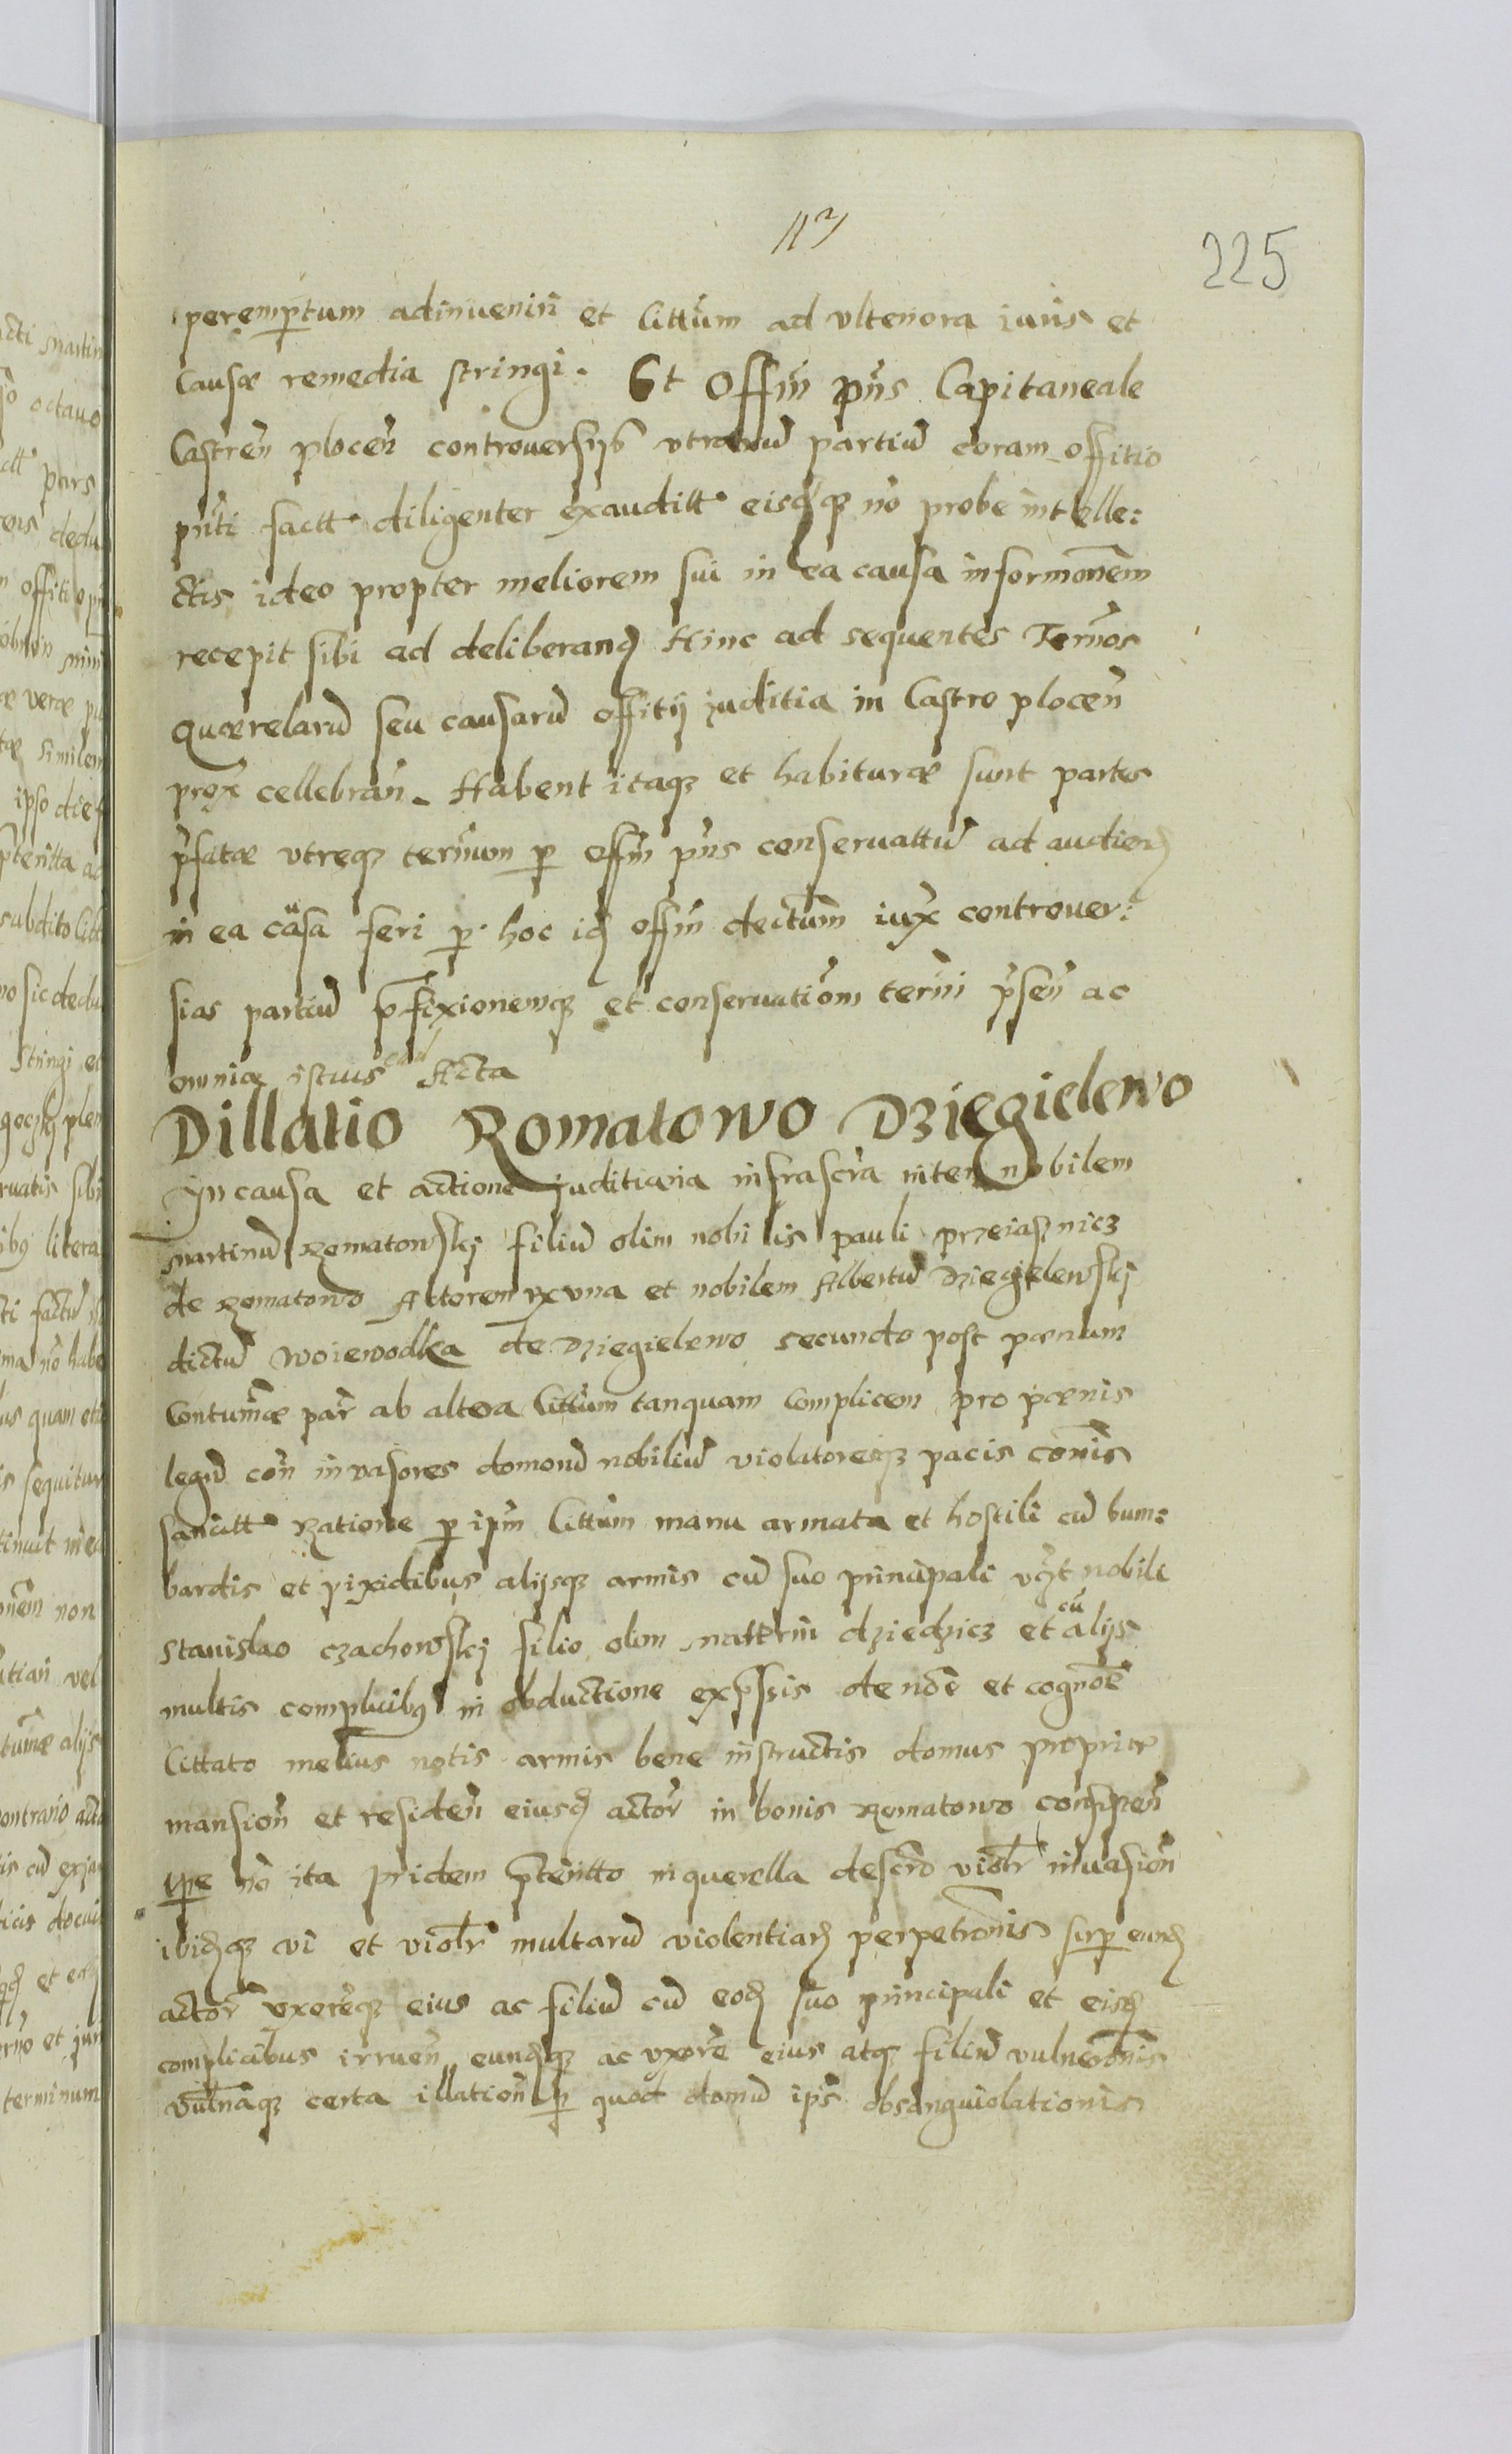 113
225
peremptum adinveniri et Cittum ad ulteriora iuris et
Causæ remedia stringi. Et Offm pns Capitaneale
Castren plocen controversijs utrarum partium coram offitio
pnti factt diligenter exauditt eisdq no probe intelle:
ctis ideo propter meliorem sui in ea causa informonem
recepit sibi ad deliberand Hinc ad sequentes Termos
Quærelarum seu causarum offitij juditia in Castro plocen
prox cellebran. Habent itaq et habituræ sunt partes
pfatæ utreq termum p offm pns conservattum ad audiend
in ea causa feri p hoc id offm dectum iux controver:
sias partium pfixionemq et conservationem termi psen ac
omnia istius Acta
Dillatio Romatowo Dziegielewo
In causa et actione juditiaria infrascra inter nobilem
Martinum Romatowskj filium olim nobilis pauli przeiasznicz
de Romatowo Actorem ex una et nobilem Albertum Dziegielewskj
dictum Woiewodka de Dziegielewo secundo post pœnam
Contumæ par ab altera Cittum tanquam Complicem pro pœnis
legum con invasores domorum nobilium violatoresq pacis comis
sancitt Ratione p ipm Cittum manu armata et hostili cum bum:
bardis et pixidibus alijsq armis cum suo principali vzt nobili
Stanislao Czachowskj filio olim Matthi dziedzicz et cum alijs
multis complicibus in obductione expssis de noe et cognoe
Cittato melius notis armis bene instructis domus propriæ
mansion et residen eiusd actor in bonis Romatowo consisten
tpre no ita pridem pteritto in querella descro violr invasion
ibidq vi et violr multarum violentiard perpetronis sup eund
actor uxoreq eius ac filium cum eod suo principali et eisd
complicibus irruen eundq ac uxore eius atq filium vulneronis
vulnaq certa illation p quod domum ips obsanguiolationis